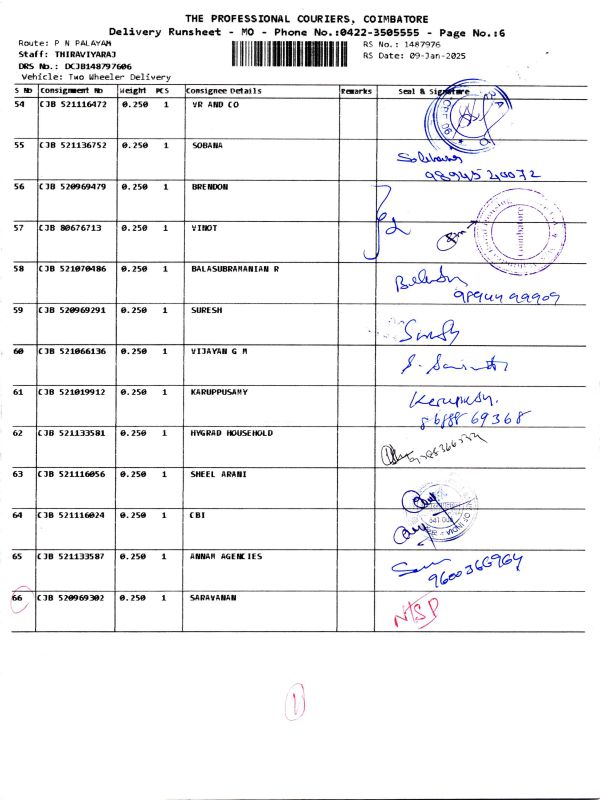 THE PROFESSIONAL COURIERS, COIMBATORE
Delivery Runsheet - MO - Phone No.:0422-3505555 - Page No.:6
Route: P N PALAYAM
RS No.: 1487976
Staff: THIRAVIYARAJ
RS Date: 09-Jan-2025
DRS No.: DCJB148797606
Vehicle: Two Wheeler Delivery
S No Consignment No Weight PCS Consignee Details Remarks Seal & Signature
54 CJB 521116472 0.250 1 VR AND CO
55 CJB 521136752 0.250 1 SOBANA
9894520072
56 CJB 520969479 0.250 1 BRENDON
57 CJB 80676713 0.250 1 VINOT
Coimbatore
58 CJB 521070486 0.250 1 BALASUBRAMANIAN R
59 CJB 520969291 0.250 1 SURESH
60 CJB 521066136 0.250 1 VIJAYAN G M
61 CJB 521019912 0.250 1 KARUPPUSAMY
62 CJB 521133581 0.250 1 HYGRAD HOUSEHOLD
63 CJB 521116056 0.250 1 SHEEL ARANI
64 CJB 521116024 0.250 1 CBI
65 CJB 521133587 0.250 1 ANNAM AGENCIES
9600366964
66 CJB 520969302 0.250 1 SARAVANAN
NTSP